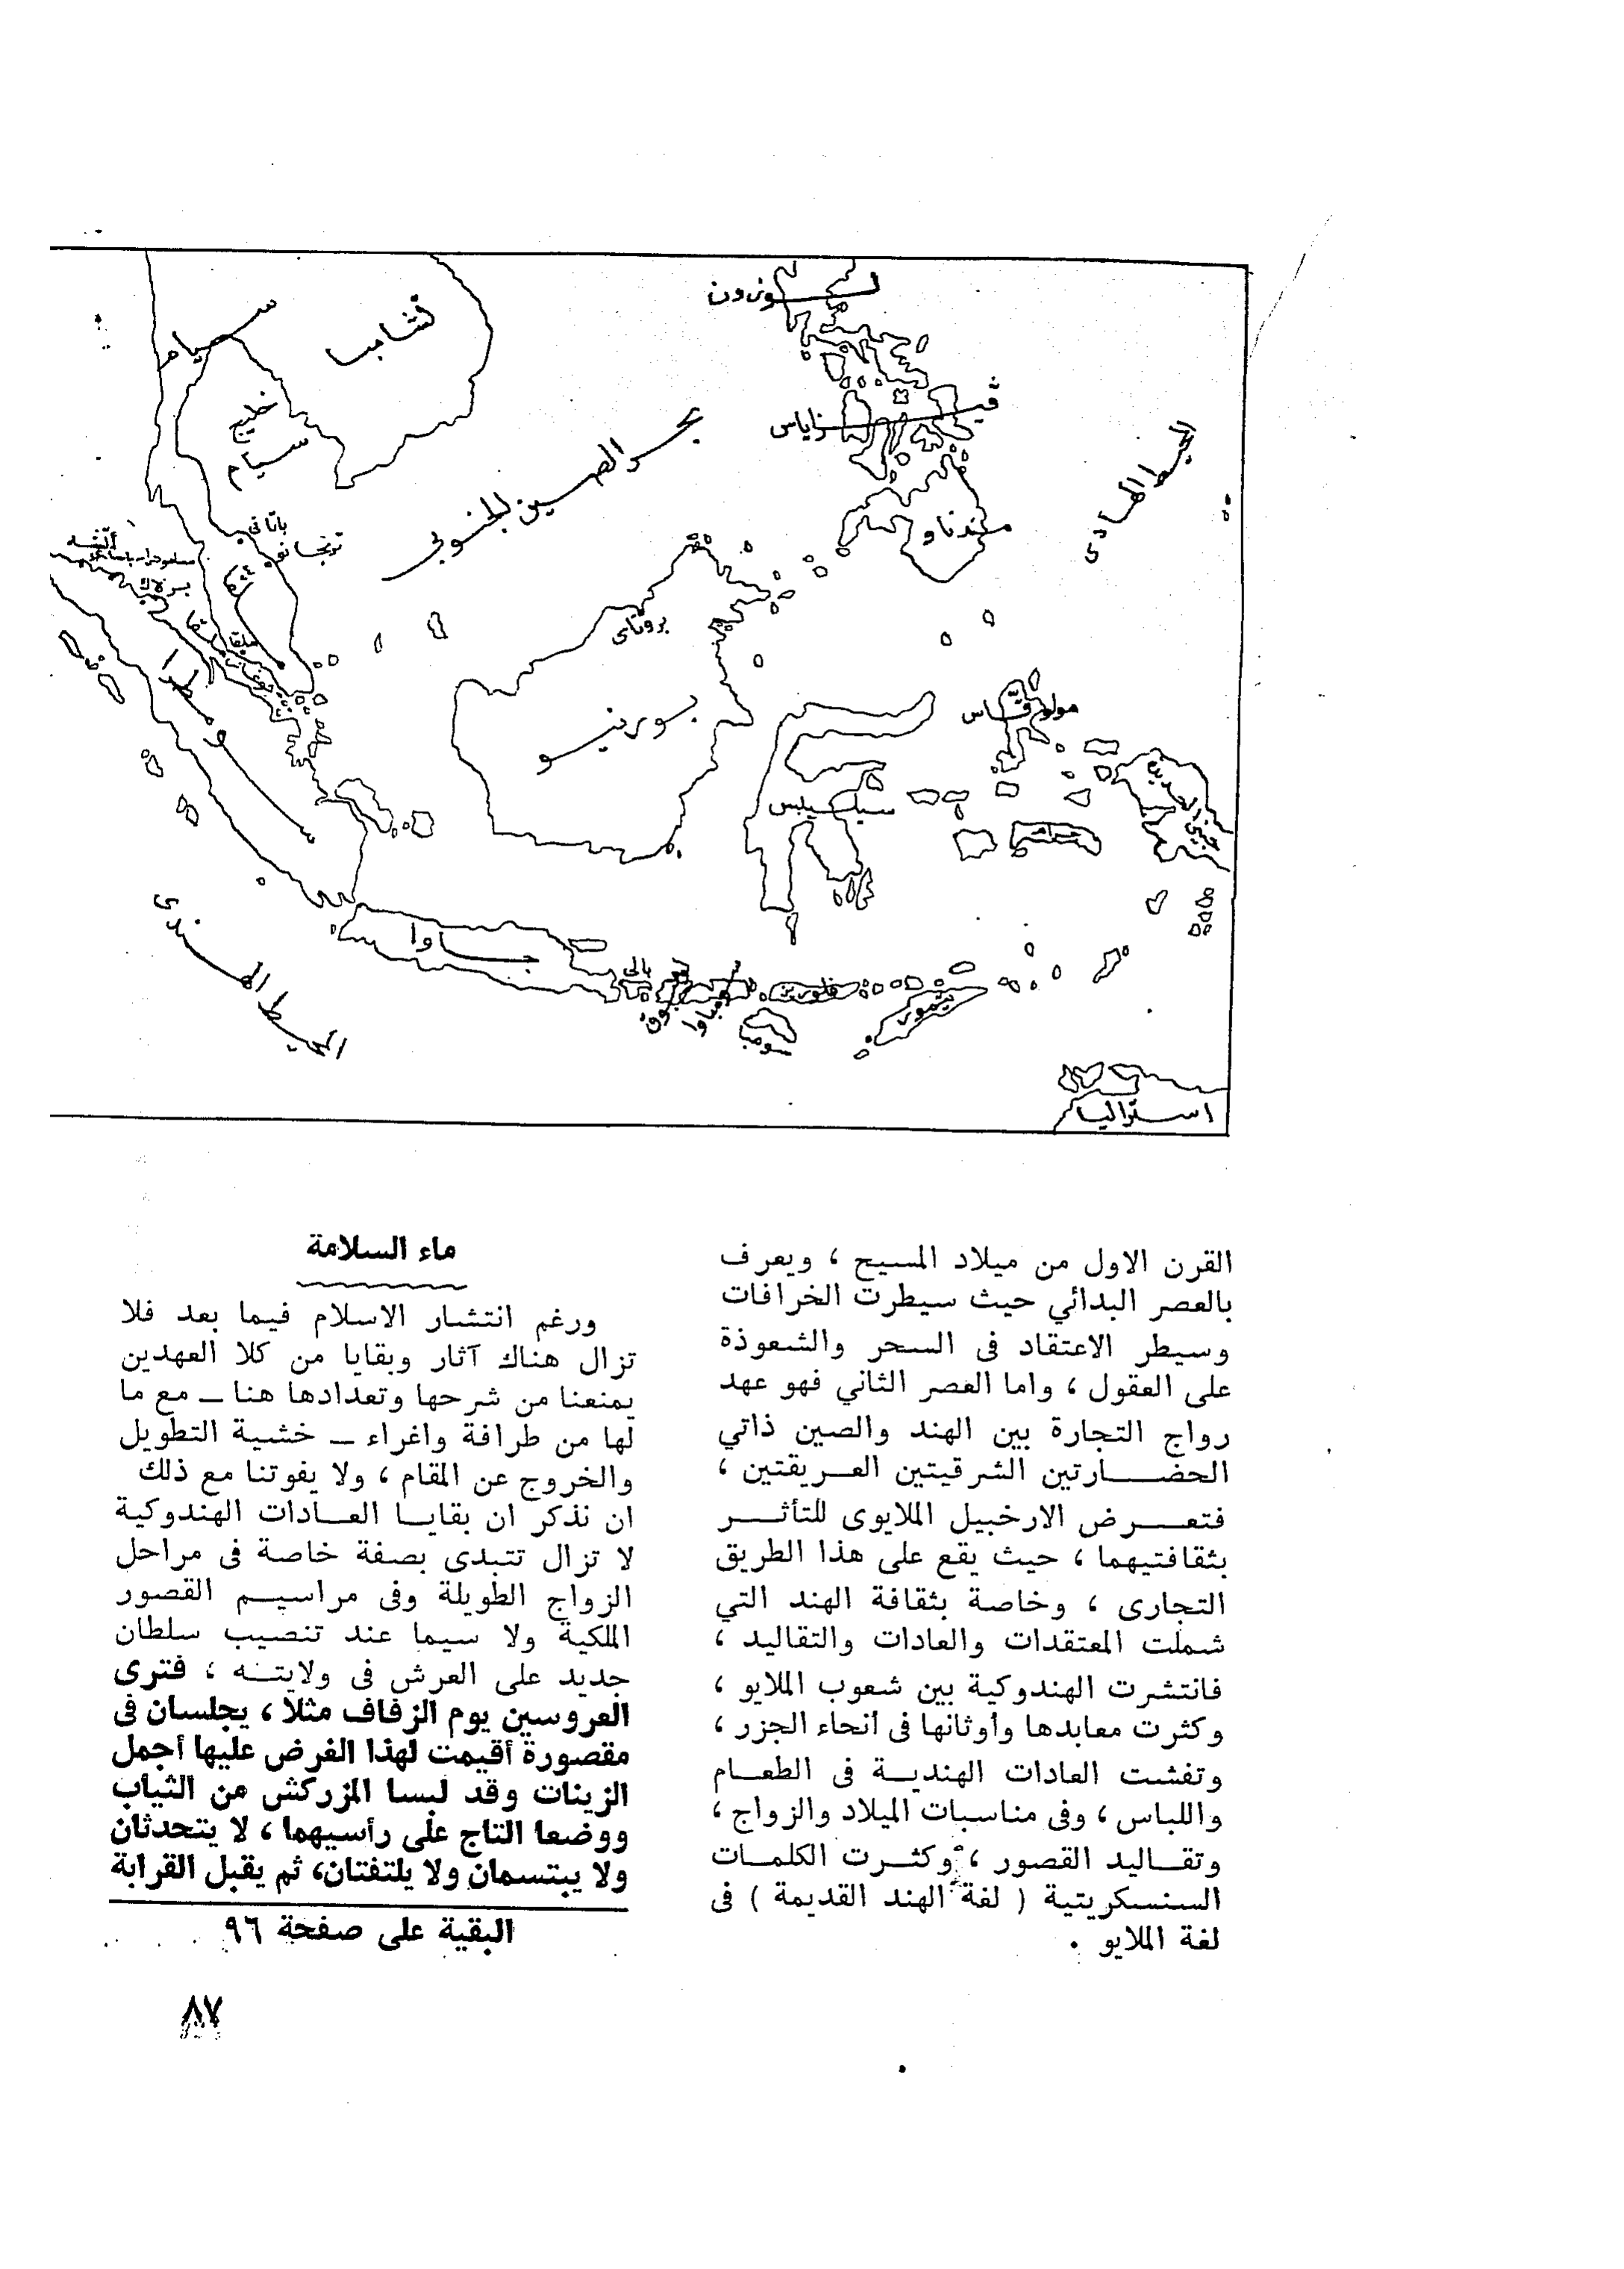 لـونزون
سيام
تشامبا
خليج
سيام
فيـزاياس
بحر الصين الجنوبي
المحيط الهادى
منداناو
باتانى
ترنجانو
برلاك
ملقا
بروناى
بورنيو
مولوقاس
سيليبس
جاوا
بالى
فلوريز
تيمور
المحيط الهندى
استراليا
القرن الاول من ميلاد المسيح ، ويعرف
بالعصر البدائي حيث سيطرت الخرافات
وسيطر الاعتقاد فى السحر والشعوذة
على العقول ، واما العصر الثاني فهو عهد
رواج التجارة بين الهند والصين ذاتي
الحضـارتين الشرقيتين العـريقتين ،
فتعـرض الارخبيل الملايوى للتأثـر
بثقافتيهما ، حيث يقع على هذا الطريق
التجارى ، وخاصة بثقافة الهند التي
شملت المعتقدات والعادات والتقاليد ،
فانتشرت الهندوكية بين شعوب الملايو ،
وكثرت معابدها وأوثانها فى أنحاء الجزر ،
وتفشت العادات الهنديـة فى الطعـام
واللباس ، وفى مناسبات الميلاد والزواج ،
وتقـاليد القصور ، وكثـرت الكلمـات
السنسكريتية ( لغة الهند القديمة ) فى
لغة الملايو .
ماء السلامة
ورغم انتشار الاسلام فيما بعد فلا
تزال هناك آثار وبقايا من كلا العهدين
يمنعنا من شرحها وتعدادها هنا ــ مع ما
لها من طرافة واغراء ــ خشية التطويل
والخروج عن المقام ، ولا يفوتنا مع ذلك
ان نذكر ان بقايـا العـادات الهندوكية
لا تزال تتبدى بصفة خاصة فى مراحل
الزواج الطويلة وفى مراسيـم القصور
الملكية ولا سيما عند تنصيب سلطان
جديد على العرش فى ولايتـه ، فترى
العروسين يوم الزفاف مثلا ، يجلسان فى
مقصورة أقيمت لهذا الغرض عليها أجمل
الزينات وقد لبسا المزركش من الثياب
ووضعا التاج على رأسيهما ، لا يتحدثان
ولا يبتسمان ولا يلتفتان، ثم يقبل القرابة
البقية على صفحة ٩٦
٨٧